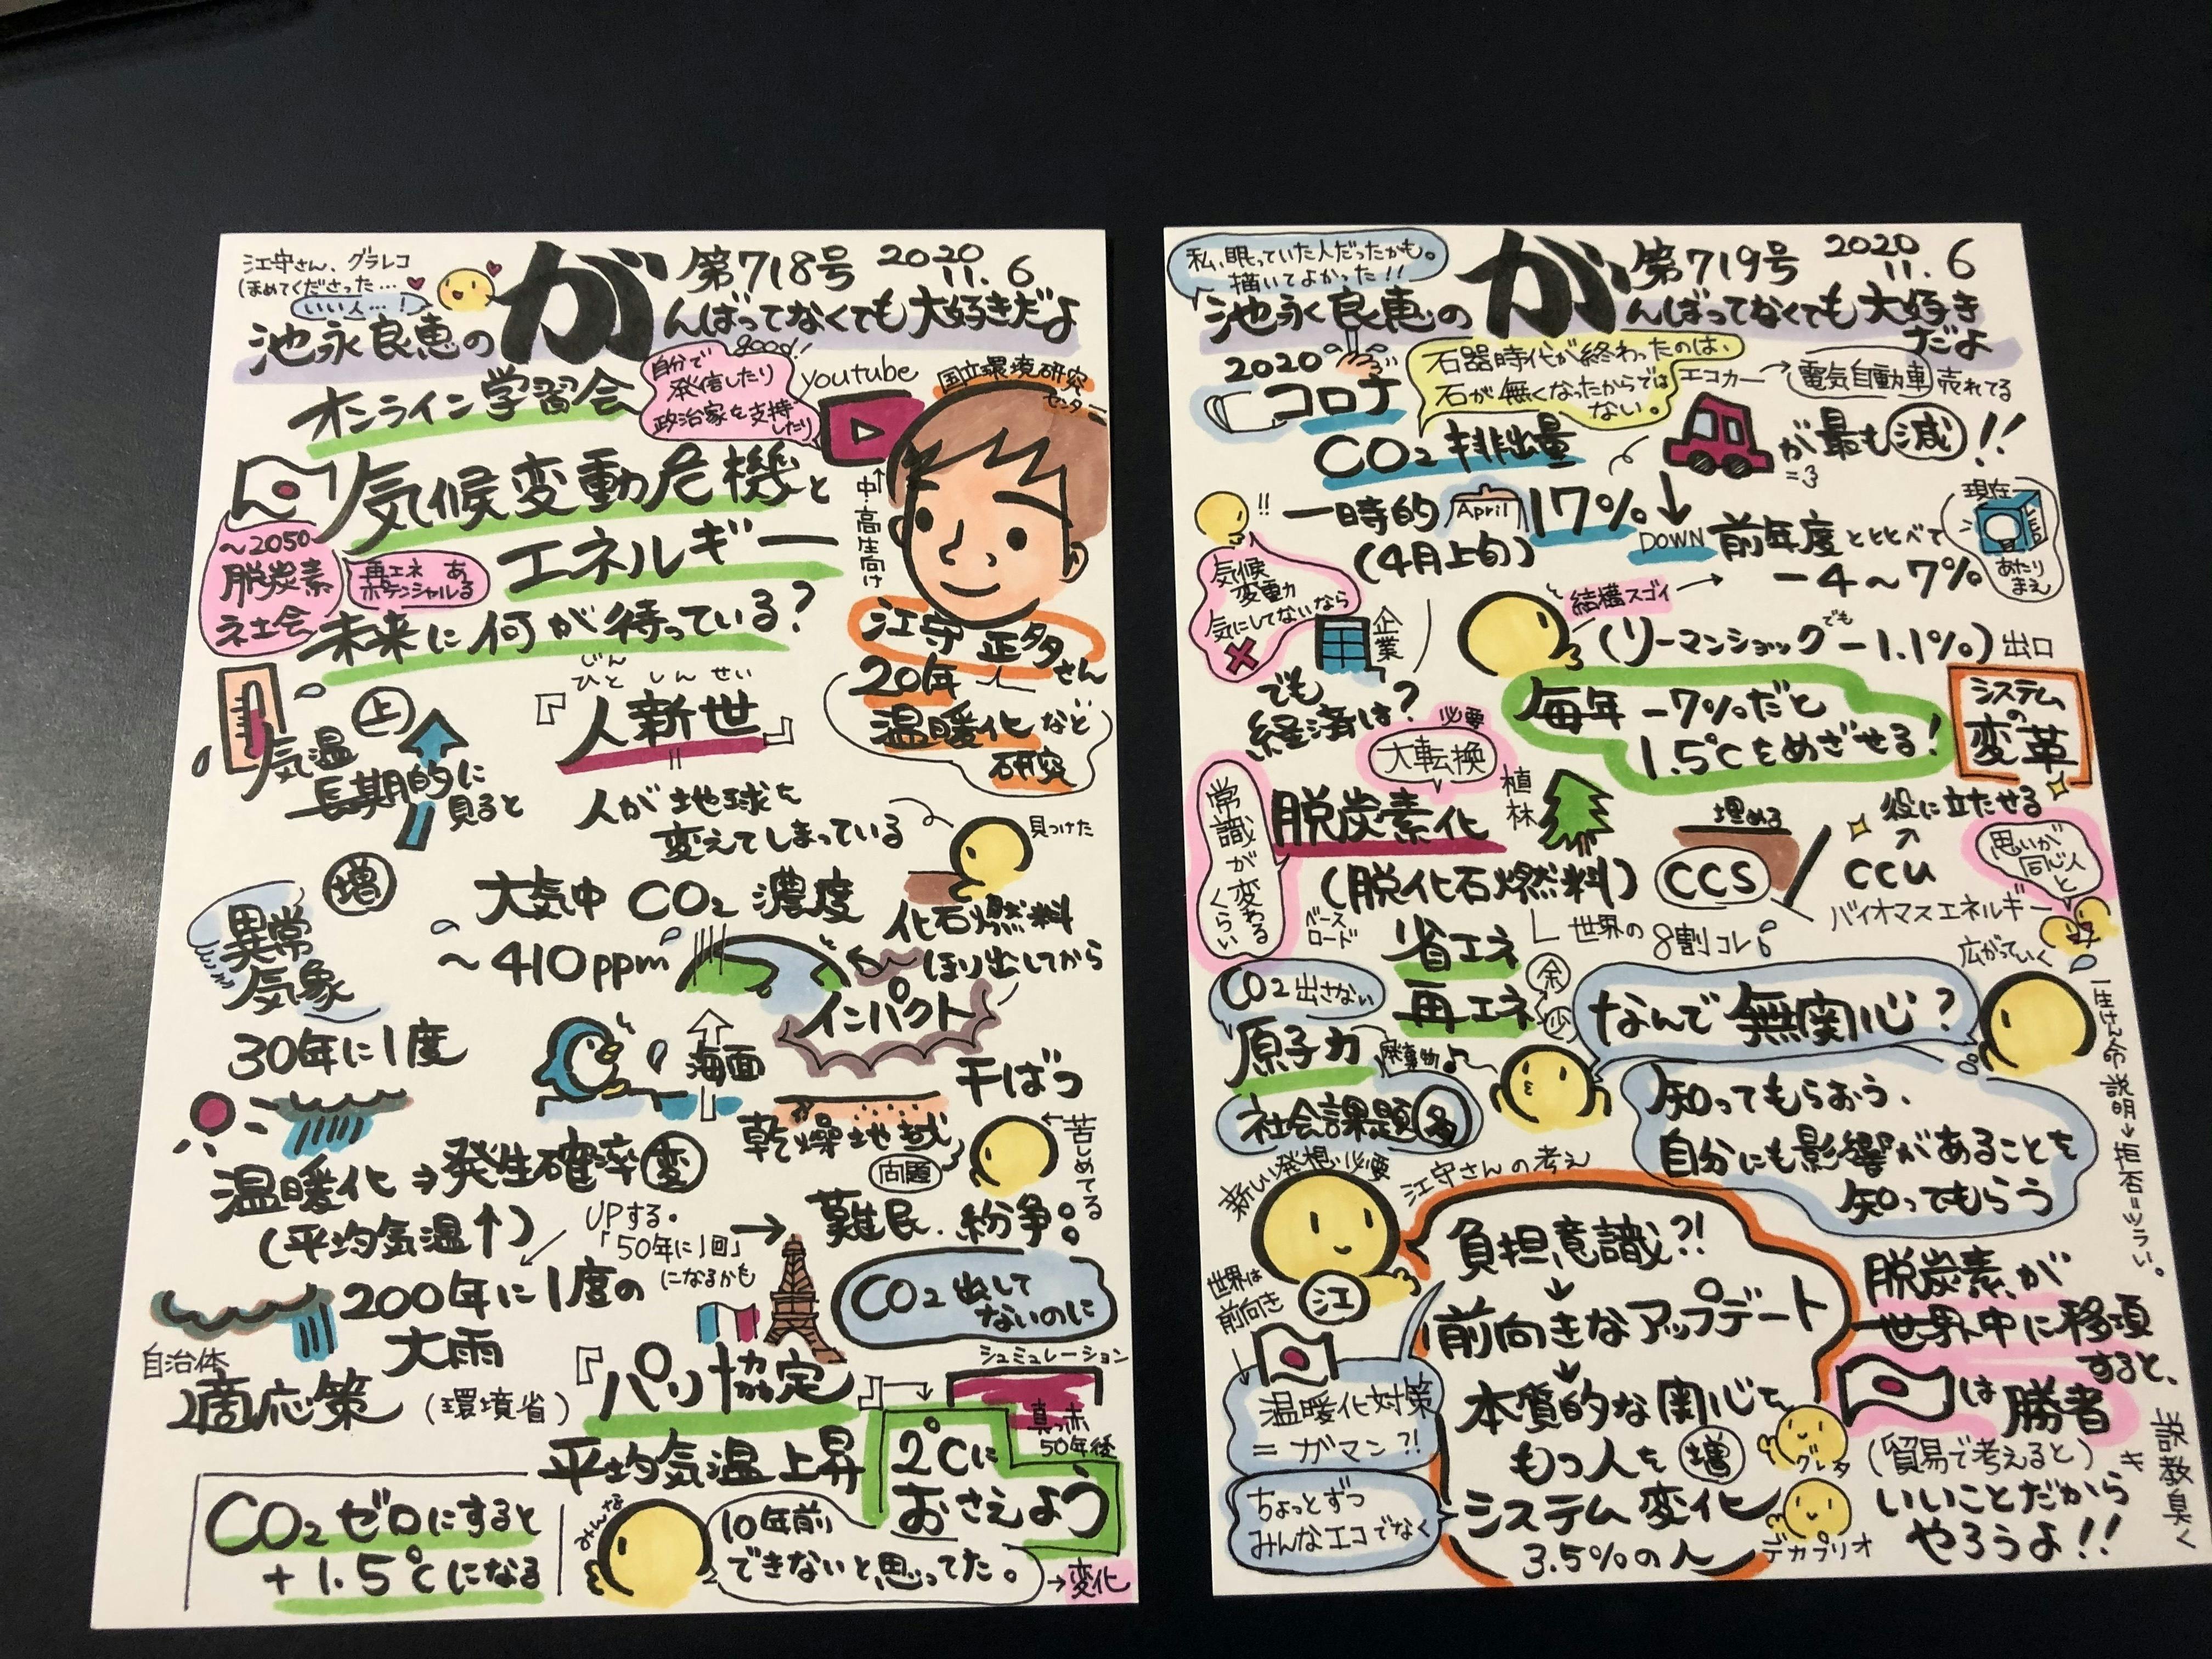 江守さん、グラレコ
ほめてくださった…
いい人…!
が 第718号 2020 11.6
池永良恵の
んばってなくても大好きだよ
オンライン学習会
good!
自分で
発信したり
政治家を支持
したり
youtube
国立環境研究
センター
中・高生向け
気候変動危機と
エネルギー
未来に何が待っている?
～2050
脱炭素
社会
再エネ
ポテンシャル
ある
江守正多さん
20年
温暖化など
研究
気温
上
長期的に
見ると
じん
ひとしんせい
『人新世』
=
人が地球を
変えてしまっている
見つけた
増
異常
気象
大気中CO2濃度
～410ppm
化石燃料
ほり出してから
インパクト
30年に1度
海面
干ばつ
乾燥地域
問題
苦しめてる
温暖化→発生確率変
(平均気温↑)
UPする。
「50年に1回」
になるかも
→難民、紛争
200年に1度の
大雨
CO2出して
ないのに
自治体
適応策(環境省)
『パリ協定』
シュミレーション
真っ赤
50年後
平均気温上昇
2℃に
おさえよう
CO2ゼロにすると
+1.5℃になる
みんな
10年前
できないと思ってた。
→変化
私、眠っていた人だったかも。
描いてよかった!!
が 第719号 2020 11.6
池永良恵の
んばってなくても大好き
だよ
2020
コロナ
石器時代が終わったのは、
石が無くなったからでは
ない。
エコカー→電気自動車売れてる
CO2排出量
が最も減!!
=3
!!
一時的
April
17%↓
DOWN
(4月上旬)
前年度とくらべて
-4～7%
現在
あたり
まえ
気候
変動
気にしてないなら
×
企業
結構スゴイ→
(リーマンショックでも-1.1%)
出口
でも
経済は?
毎年-7%だと
1.5℃をめざせる!
システム
の
変革
必要
大転換
常識が変わる
くらい
脱炭素化
(脱化石燃料)
植林
埋める
CCS
役に立たせる
CCU
バイオマスエネルギー
思いが
同じ人
と
広がっていく
世界の8割コレ
ベース
ロード
省エネ
再エネ
CO2出さない
原子力
社会課題多
なんで無関心?
知ってもらおう、
自分にも影響があることを
知ってもらう
一生けん命説明→拒否=ツラい。
新しい発想必要
江守さんの考え
江
負担意識?!
↓
前向きなアップデート
↓
本質的な関心を
もつ人を増
システム変化
3.5%の人
世界は
前向き
温暖化対策
=ガマン?!
ちょっとずつ
みんなエコでなく
グレタ
デカプリオ
脱炭素が
世界中に移項
すると、
は勝者
(貿易で考えると)
いいことだから
やろうよ!!
説教臭く